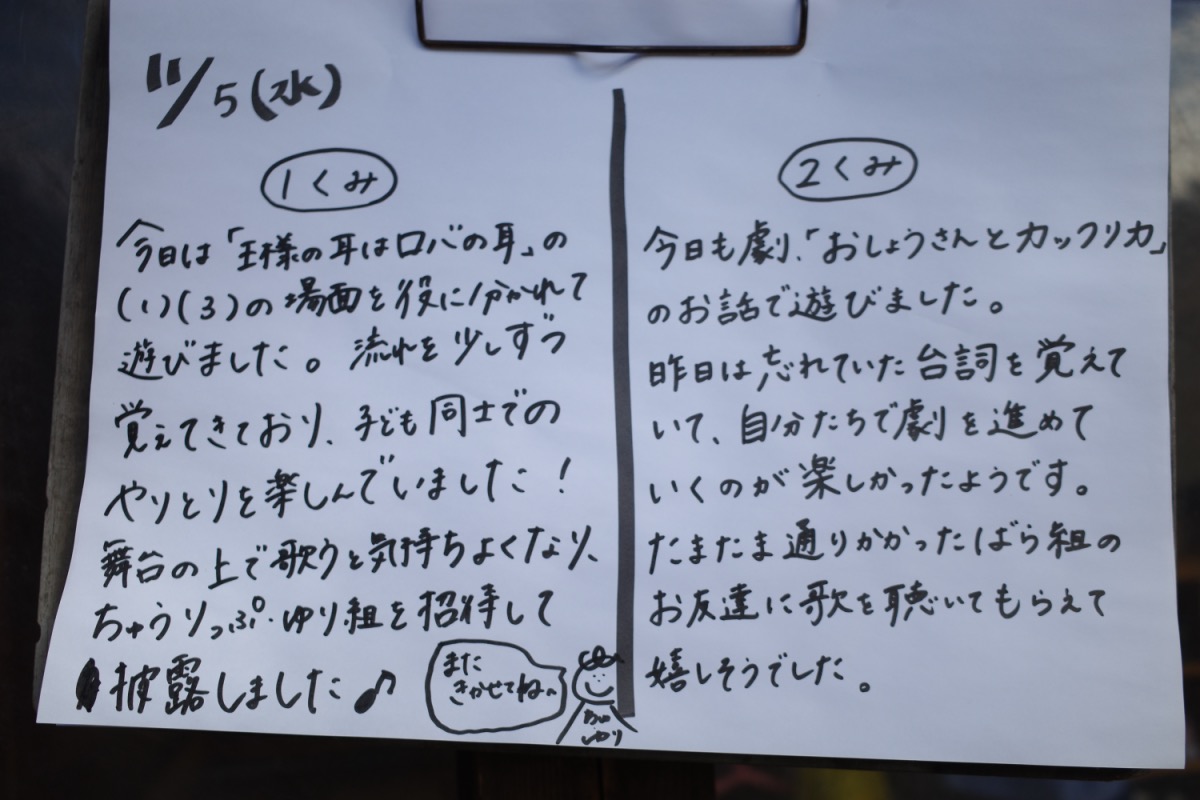 11/5(水)
1くみ
今日は「王様の耳はロバの耳」の
(1)(3)の場面を役に分かれて
遊びました。流れを少しずつ
覚えてきており、子ども同士での
やりとりを楽しんでいました！
舞台の上で歌うと気持ちよくなり、
ちゅうりっぷ・ゆり組を招待して
披露しました♪
また
きかせてね〜
ゆり
2くみ
今日も劇、「おしょうさんとカックリカ」
のお話で遊びました。
昨日は忘れていた台詞を覚えて
いて、自分たちで劇を進めて
いくのが楽しかったようです。
たまたま通りかかったばら組の
お友達に歌を聴いてもらえて
嬉しそうでした。